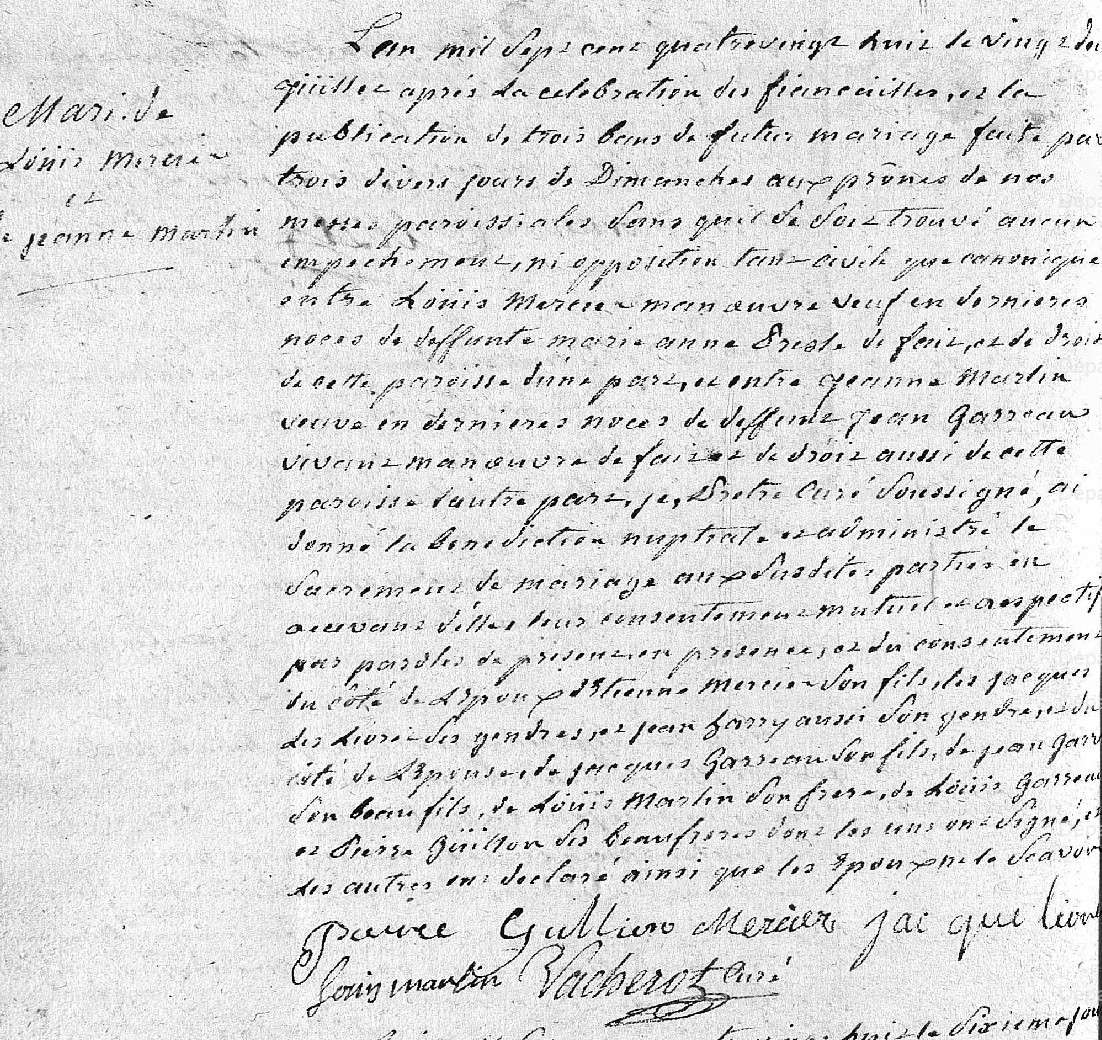 Mari. de
Loüis Mercier
et
de jeanne Martin
L'an mil sept cent quatrevingt huit le vingt deu
juillet aprés la celebration des fiancailles, et la
publication de trois bans de futur mariage faite par
trois divers jours de Dimanches aux prônes de nos
messes paroissiales sans quil se soit trouvé aucun
empechement, ni opposition tant civile que canonique
entre Loüis Mercier manœuvre veuf en dernieres
noces de deffunte marie anne de fait, et de droit
de cette paroisse d'une part, et entre jeanne Martin
veuve en dernieres noces de deffunt jean Garreau
vivant manœuvre de fait et de droit aussi de cette
paroisse d'autre part, je, Pretre Curé soussigné, ai
donné la benediction nuptiale et administré le
sacrement de mariage aux susdites parties en
recevant d'elles leur consentement mutuel et respectif
par paroles de present en presence, et du consentement
du côté de L'Epoux d'Etienne Mercier son fils, des jacques
des gendres, et jean aussi son gendre, et du
côté de L'Epouse, de jacques Garreau son fils, de jean Garr
son beau fils, de Loüis Martin son frere, de Loüis Garreau
et Pierre Güillon ses beaufreres dont les uns ont signé, et
les autres ont declaré ainsi que les Epoux ne le scavoir
Gullion Mercier jacque
Louis martin Vacherot Curé
huit le sixieme jour